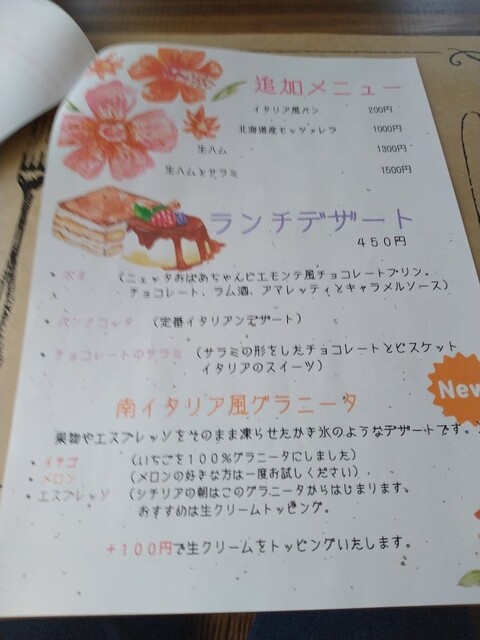 追加メニュー
イタリア風パン 200円
北海道産モッツァレラ 1000円
生ハム 1300円
生ハムとサラミ 1500円
ランチデザート
450円
・ボネ (ニェッタおばあちゃんピエモンテ風チョコレートプリン。
チョコレート、ラム酒、アマレッティとキャラメルソース)
・パンナコッタ (定番イタリアンデザート)
・チョコレートのサラミ (サラミの形をしたチョコレートとビスケット
イタリアのスイーツ)
New
南イタリア風グラニータ
果物やエスプレッソをそのまま凍らせたかき氷のようなデザートです。
・イチゴ (いちごを100%グラニータにしました)
・メロン (メロンの好きな方は一度お試しください)
・エスプレッソ (シチリアの朝はこのグラニータからはじまります。
おすすめは生クリームトッピング。
+100円で生クリームをトッピングいたします。